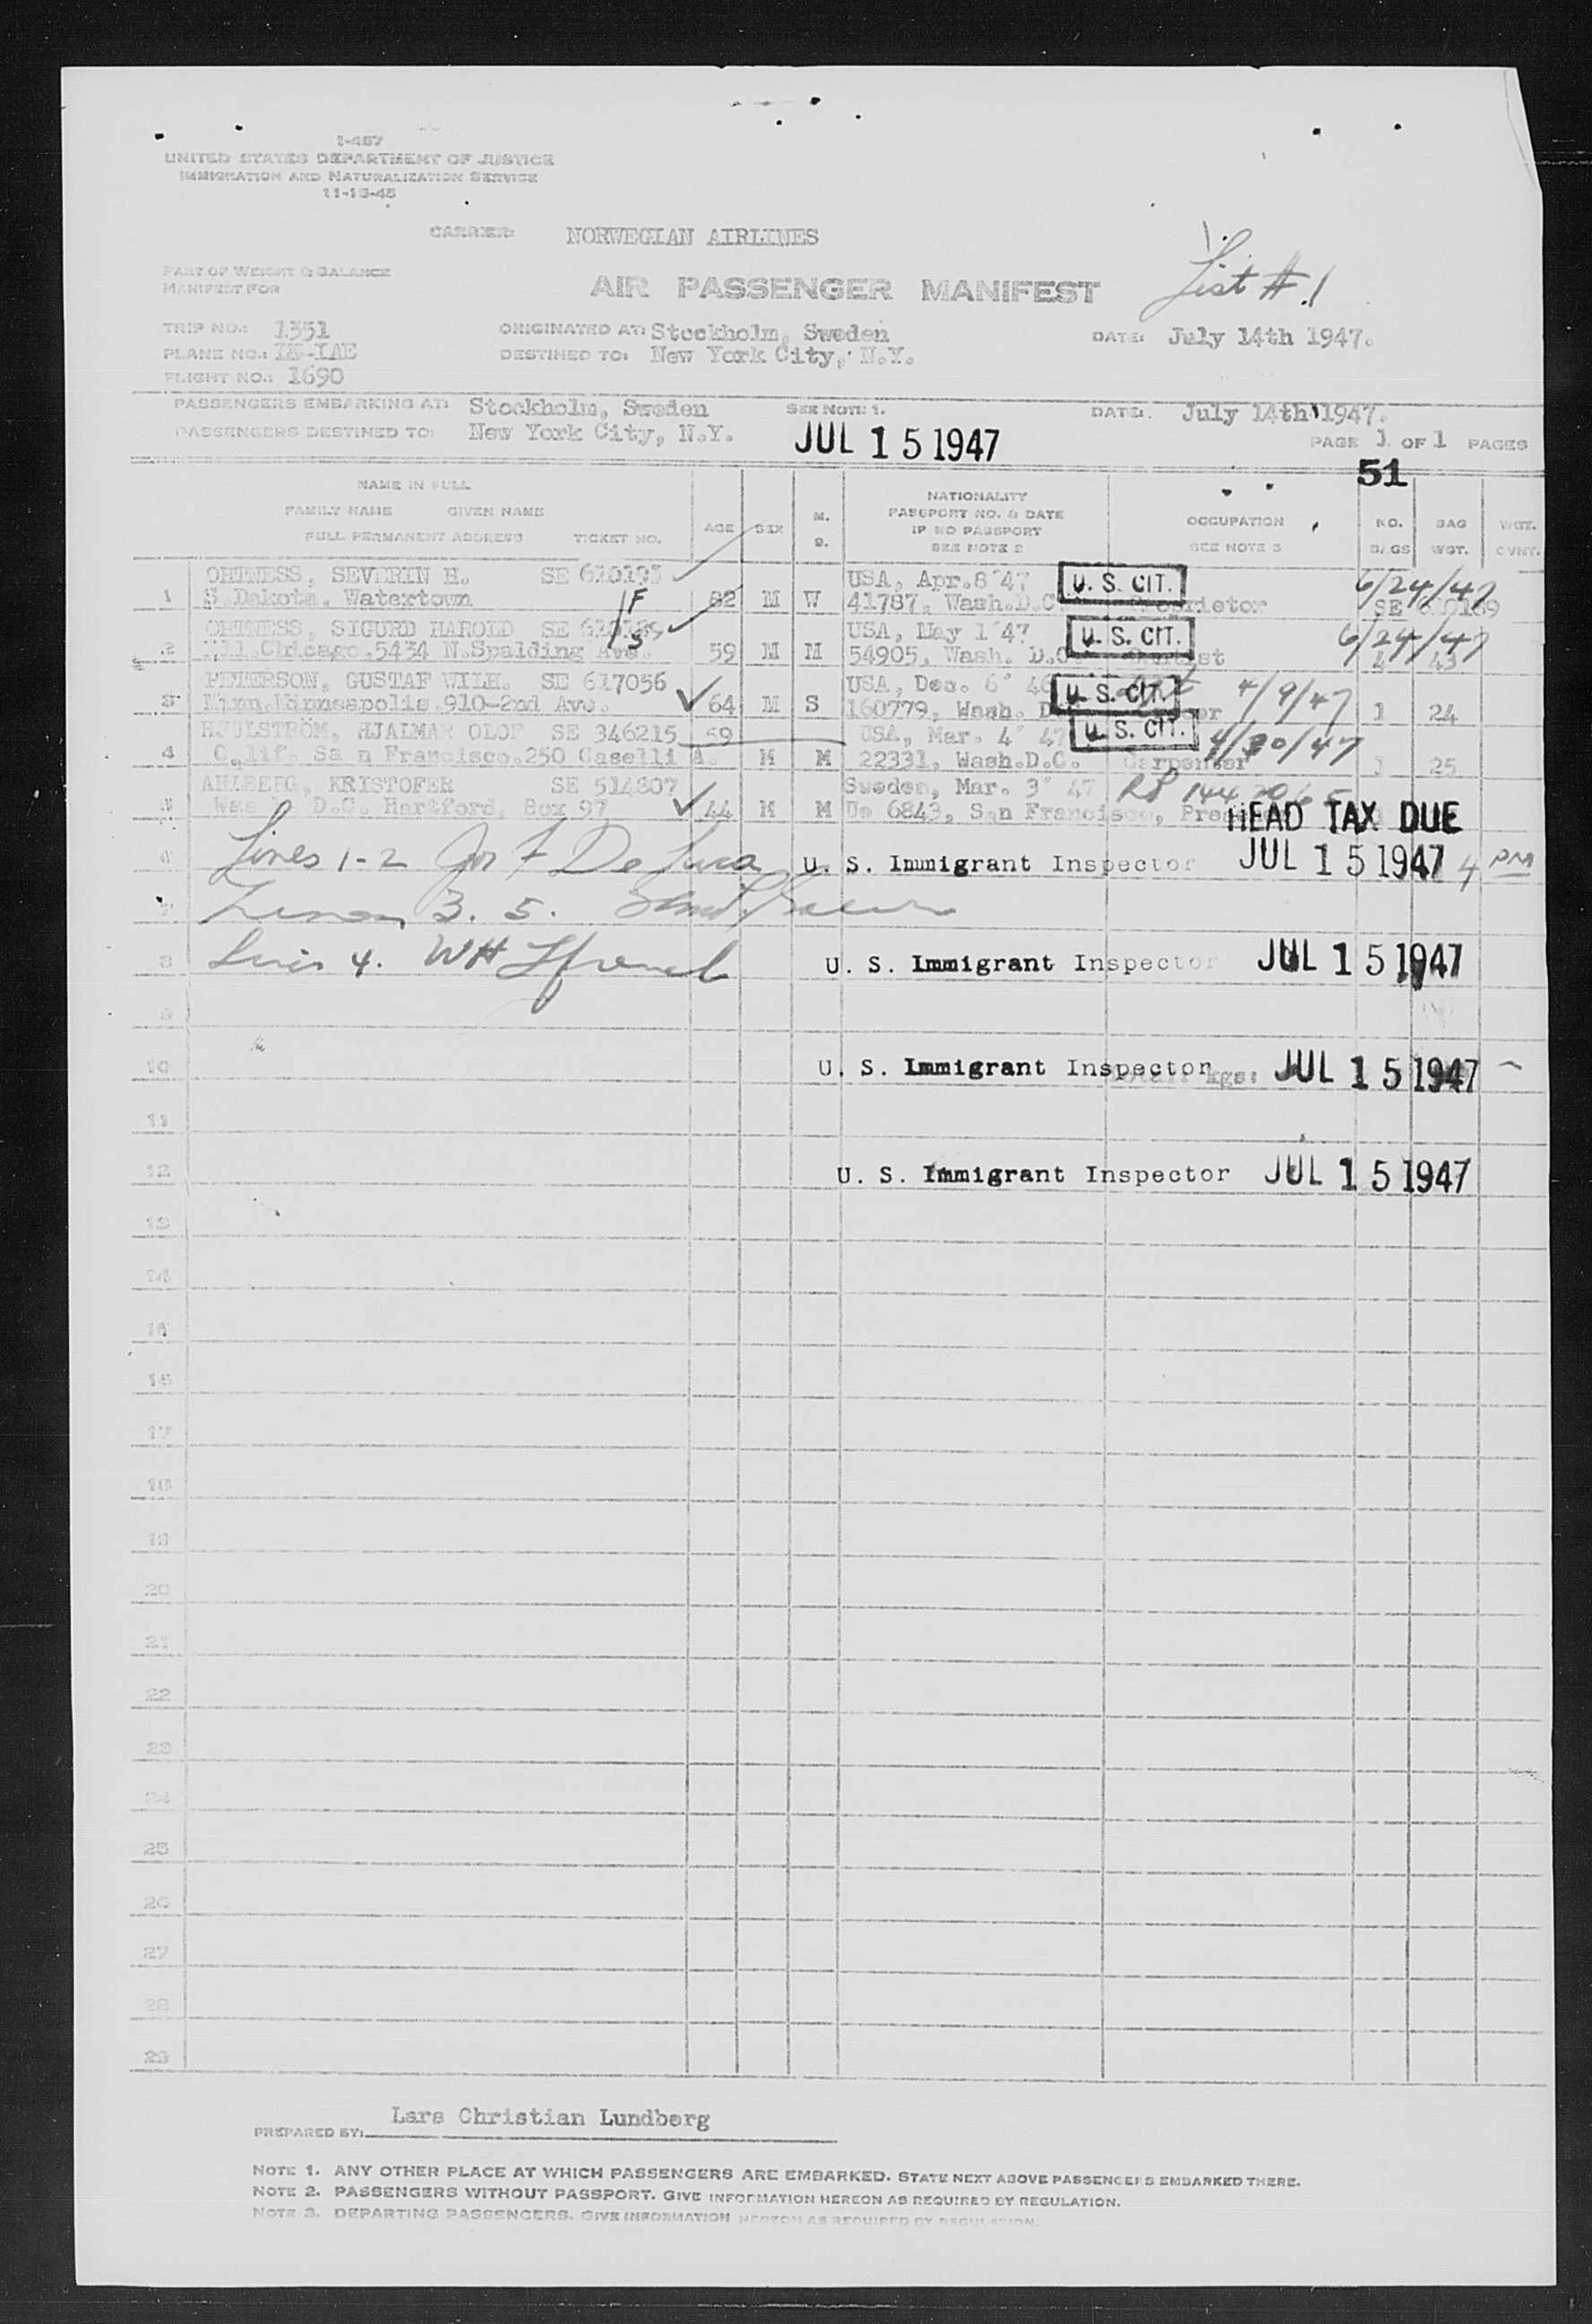 I-487
UNITED STATES DEPARTMENT OF JUSTICE
IMMIGRATION AND NATURALIZATION SERVICE
11-15-45
CARRIER: NORWEGIAN AIRLINES
PART OF WEIGHT & BALANCE
MANIFEST FOR
AIR PASSENGER MANIFEST
List # 1
TRIP NO.: 1351
ORIGINATED AT: Stockholm, Sweden
DATE: July 14th 1947.
PLANE NO.: LN-IAE
DESTINED TO: New York City, N.Y.
FLIGHT NO.: 1690
PASSENGERS EMBARKING AT: Stockholm, Sweden
SEE NOTE 1.
DATE: July 14th 1947.
PASSENGERS DESTINED TO: New York City, N.Y.
JUL 15 1947
PAGE 1 OF 1 PAGES
51
NAME IN FULL
FAMILY NAME GIVEN NAME
FULL PERMANENT ADDRESS TICKET NO.
AGE SEX M. S.
NATIONALITY
PASSPORT NO. & DATE
IF NO PASSPORT
SEE NOTE 2
OCCUPATION
SEE NOTE 3
NO. BAGS
BAG WGT.
WGT. OVNT.
SEVERIN H. SE USA, Apr. 8 47 U. S. CIT. 6/24/47
1 S. Dakota. Watertown F 82 M W 41787, Wash. D.C. SE
SIGURD HAROLD SE USA, May 1 47 U. S. CIT. 6/24/47
2 Ill. Chicago. 5434 N. Spalding Ave. S 59 M M 54905, Wash. D.C. 4 43
PETERSON, GUSTAF WILH. SE 617056 USA, Dec. 6 46 U. S. CIT. 4/9/47
3 Minn. Minneapolis. 910-2nd Ave. 64 M S 160779, Wash. 1 24
HJULSTRÖM, HJALMAR OLOF SE 346215 59 USA, Mar. 4 47 U. S. CIT. 4/30/47
4 Calif. Sa n Francisco. 250 Caselli A. M M 22331, Wash. D.C. Carpenter 1 25
AHLBERG, KRISTOFER SE 514807 Sweden, Mar. 3 47 RP
5 D.C. Hartford, Box 97 44 M M Uo 6843, San Francisco,
HEAD TAX DUE
6 Lines 1-2 De Luca U. S. Immigrant Inspector JUL 15 1947 4 PM
7 3. 5.
8 4. WH U. S. Immigrant Inspector JUL 15 1947
9
10 U. S. Immigrant Inspector kgs: JUL 15 1947
11
12 U. S. Immigrant Inspector JUL 15 1947
13
14
15
16
17
18
19
20
21
22
23
24
25
26
27
28
29
PREPARED BY: Lars Christian Lundberg
NOTE 1. ANY OTHER PLACE AT WHICH PASSENGERS ARE EMBARKED. STATE NEXT ABOVE PASSENGERS EMBARKED THERE.
NOTE 2. PASSENGERS WITHOUT PASSPORT. GIVE INFORMATION HEREON AS REQUIRED BY REGULATION.
NOTE 3. DEPARTING PASSENGERS. GIVE INFORMATION HEREON AS REQUIRED BY REGULATION.